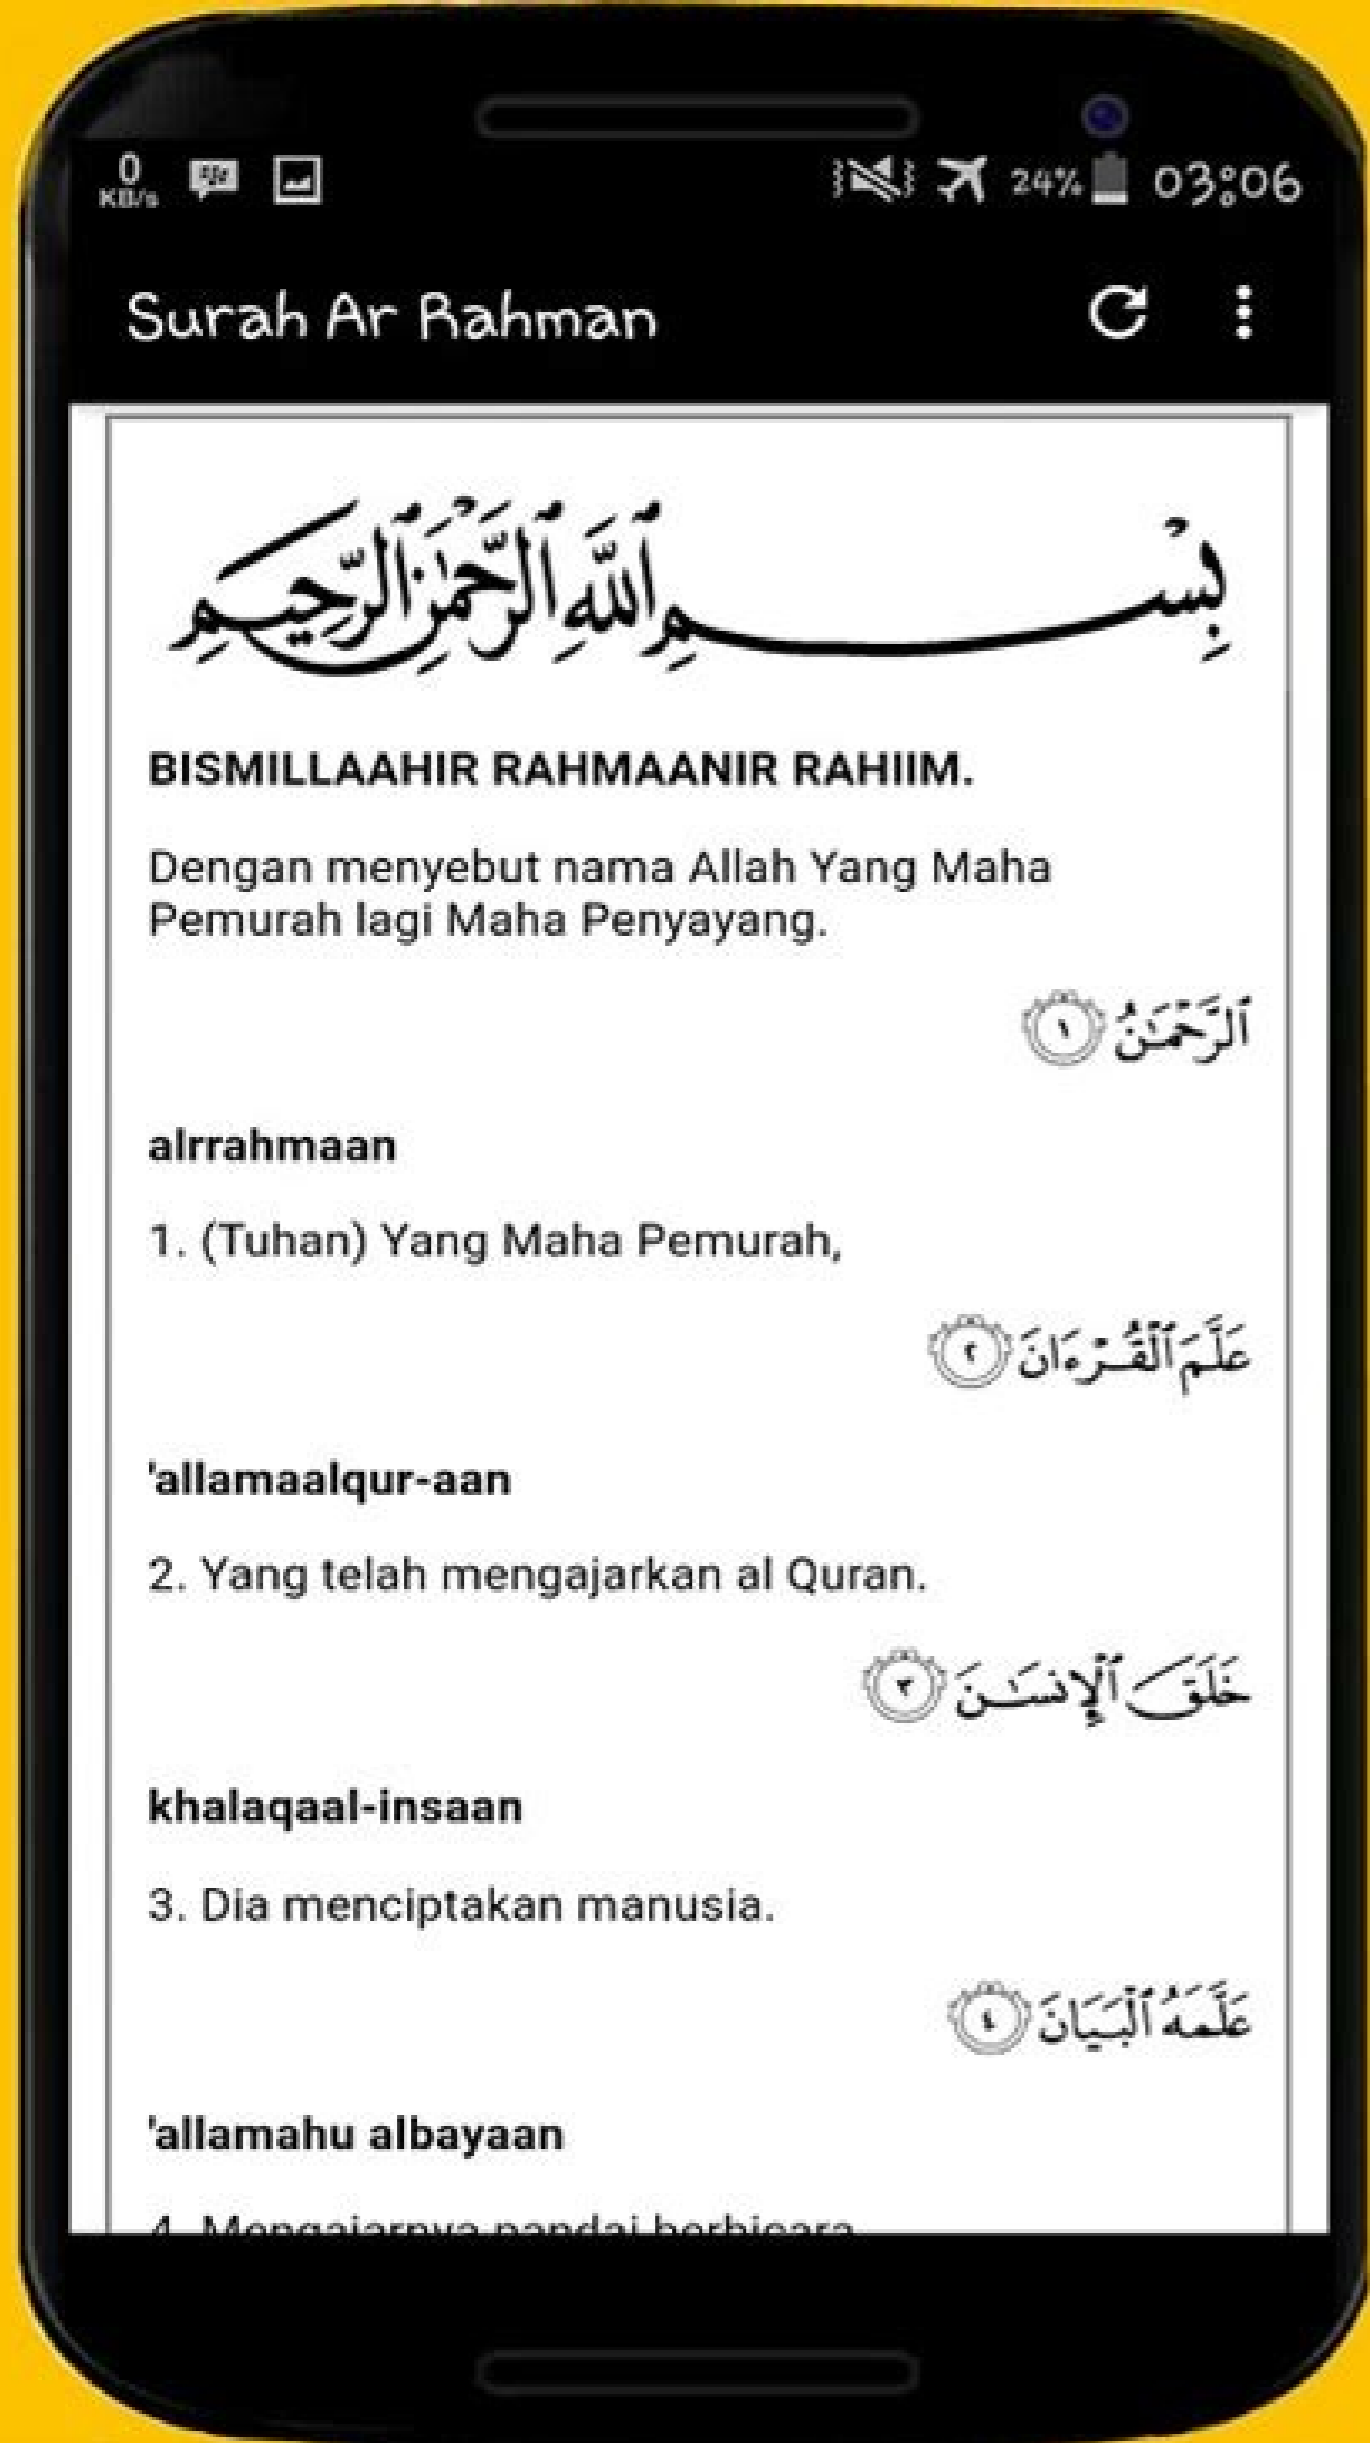 0
KB/s
24% 03:06
Surah Ar Rahman
بِسْمِ ٱللَّهِ ٱلرَّحْمَٰنِ ٱلرَّحِيمِ
BISMILLAAHIR RAHMAANIR RAHIIM.
Dengan menyebut nama Allah Yang Maha
Pemurah lagi Maha Penyayang.
ٱلرَّحْمَٰنُ ١
alrrahmaan
1. (Tuhan) Yang Maha Pemurah,
عَلَّمَ ٱلْقُرْءَانَ ٢
'allamaalqur-aan
2. Yang telah mengajarkan al Quran.
خَلَقَ ٱلْإِنسَٰنَ ٣
khalaqaal-insaan
3. Dia menciptakan manusia.
عَلَّمَهُ ٱلْبَيَانَ ٤
'allamahu albayaan
4. Mengajarnya pandai berbicara